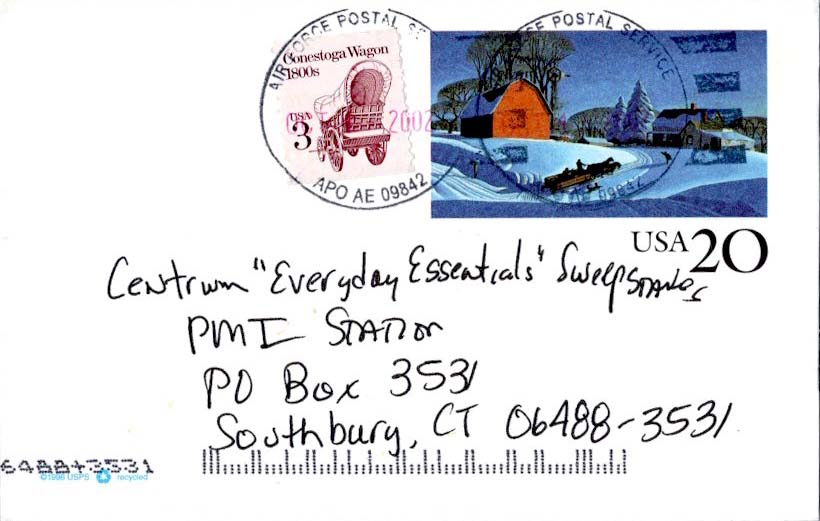 AIR FORCE POSTAL SE
CE POSTAL SERVICE
Conestoga Wagon
1800s
USA
3
2002
APO AE 09842
AE 09842
USA 20
Centrum "Everyday Essentials" Sweepstakes
PMI STATION
PO Box 3531
Southbury, CT 06488-3531
6488+3531
©1998 USPS recycled